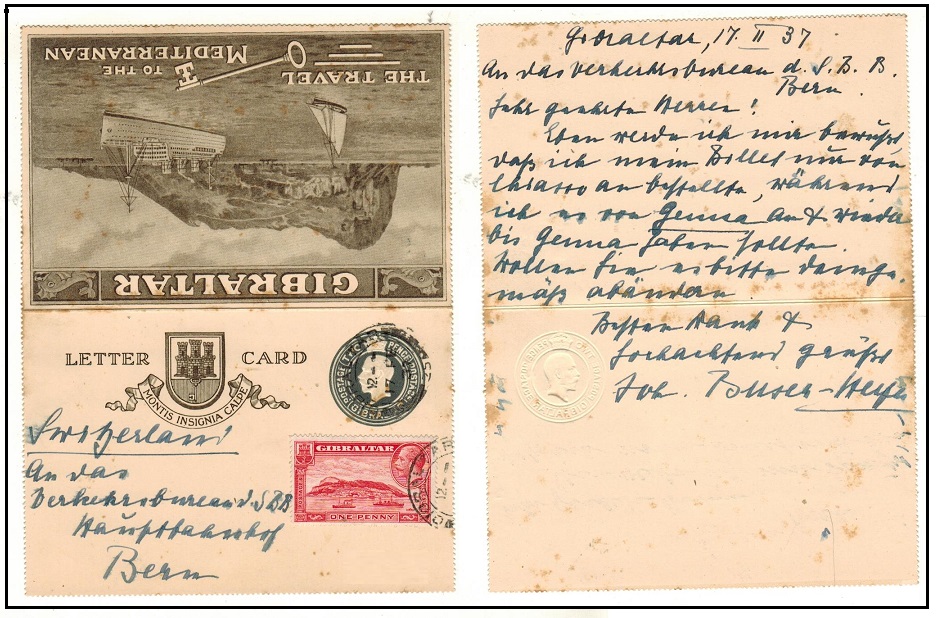 GIBRALTAR
THE TRAVEL
TO THE
MEDITERRANEAN
LETTER CARD
MONTIS INSIGNIA CALPE
Switzerland
An das
Verkehrsbureau d. SBB
Hauptbahnhof
Bern
GIBRALTAR
POSTAGE
ONE PENNY
Gibraltar, 17. II 37
An das Verkehrsbureau d. S. B. B.
Bern.
Sehr geehrte Herren!
Eben werde ich mir bewusst
daß ich mein Billet nur von
Chiasso an bestellte, während
ich es von Genua an & wieder
bis Genua haben sollte.
Wollen Sie es bitte demge-
mäß abändern.
Besten Dank &
hochachtend grüßt
Joh. Buser